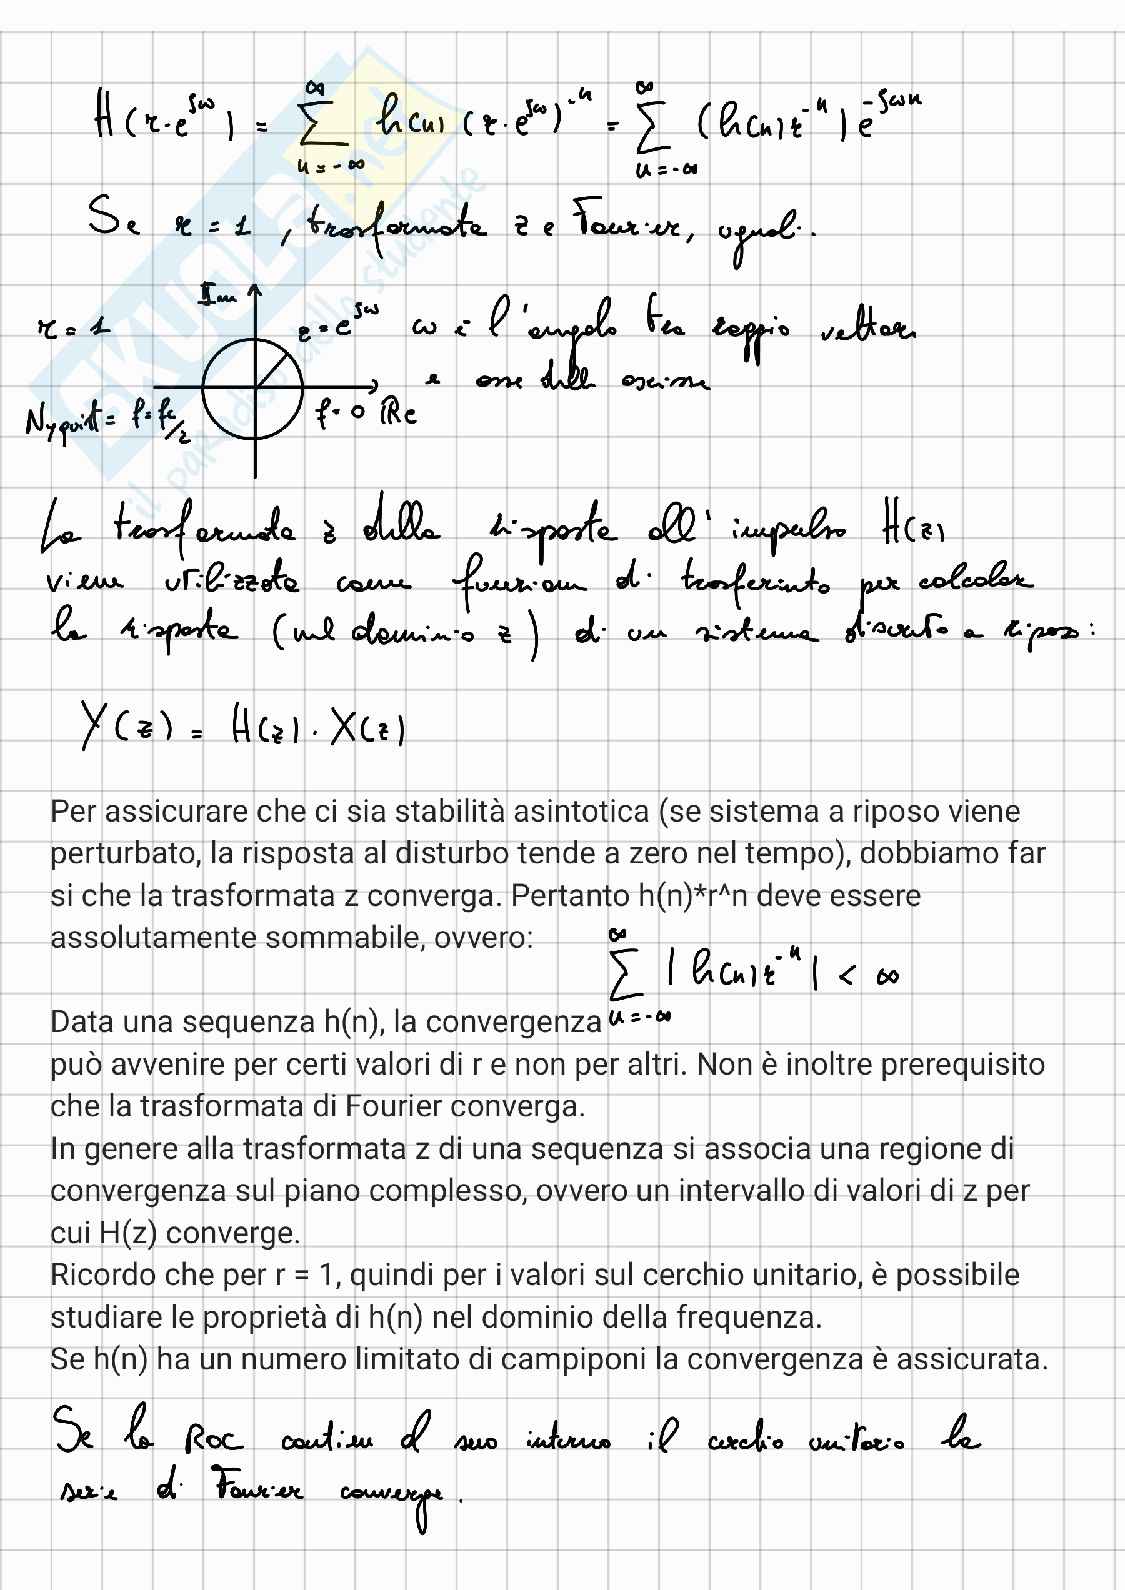 H(r·e^{jω}) = ∑_{n=-∞}^{∞} h(n) (r·e^{jω})^{-n} = ∑_{n=-∞}^{∞} (h(n) r^{-n}) e^{-jωn}
Se r = 1, trasformata z e Fourier, uguali.
Im
r = 1 z = e^{jω} ω è l'angolo tra raggio vettore
e asse delle ascisse
Nyquist = f = fc/2 f = 0 Re
La trasformata z della risposta all'impulso H(z)
viene utilizzata come funzione di trasferimento per calcolare
la risposta (nel dominio z) di un sistema discreto a riposo:
Y(z) = H(z) · X(z)
Per assicurare che ci sia stabilità asintotica (se sistema a riposo viene
perturbato, la risposta al disturbo tende a zero nel tempo), dobbiamo far
si che la trasformata z converga. Pertanto h(n)*r^n deve essere
assolutamente sommabile, ovvero:
∑_{n=-∞}^{∞} |h(n) r^{-n}| < ∞
Data una sequenza h(n), la convergenza
può avvenire per certi valori di r e non per altri. Non è inoltre prerequisito
che la trasformata di Fourier converga.
In genere alla trasformata z di una sequenza si associa una regione di
convergenza sul piano complesso, ovvero un intervallo di valori di z per
cui H(z) converge.
Ricordo che per r = 1, quindi per i valori sul cerchio unitario, è possibile
studiare le proprietà di h(n) nel dominio della frequenza.
Se h(n) ha un numero limitato di campiponi la convergenza è assicurata.
Se la ROC contiene al suo interno il cerchio unitario la
serie di Fourier converge.
SKUOLA.net
il paradiso dello studente